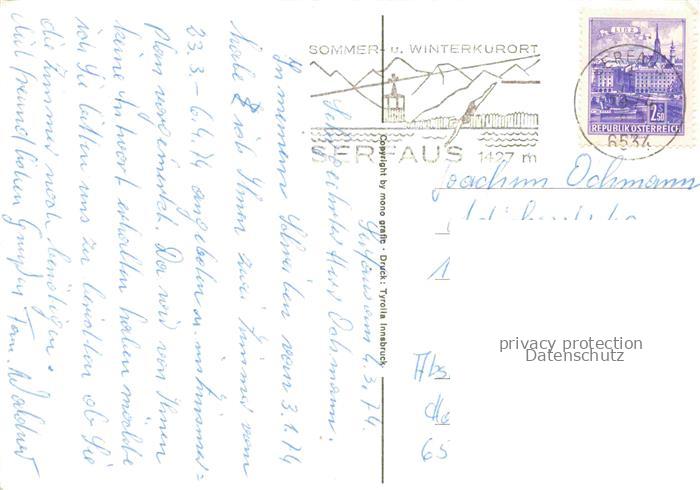 SOMMER- u. WINTERKURORT
SERFAUS 1427 m
LINZ
2.50
REPUBLIK ÖSTERREICH
6534
Copyright by mono grafic · Druck: Tyrolia Innsbruck
Serfaus am 4.3.74.
Sehr geehrter Herr Ochmann.
In meinem Schreiben vom 3.1.74
habe ich Ihnen zwei Zimmer vom
23.3.-6.4.74 angeboten u. im Zimmer=
plan vorgemerkt. Da wir von Ihnen
keine Antwort erhalten haben möchte
ich Sie bitten uns zu berichten ob Sie
die Zimmer noch benötigen.
Mit freundlichen Grüßen Fam.
Joachim Ochmann
1
Abs
65
privacy protection
Datenschutz